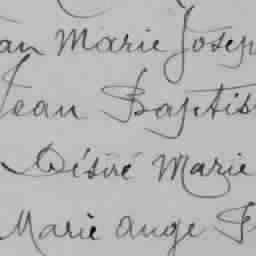 an Marie Josep
Jean Baptis
Désiré Marie
Marie Ange F